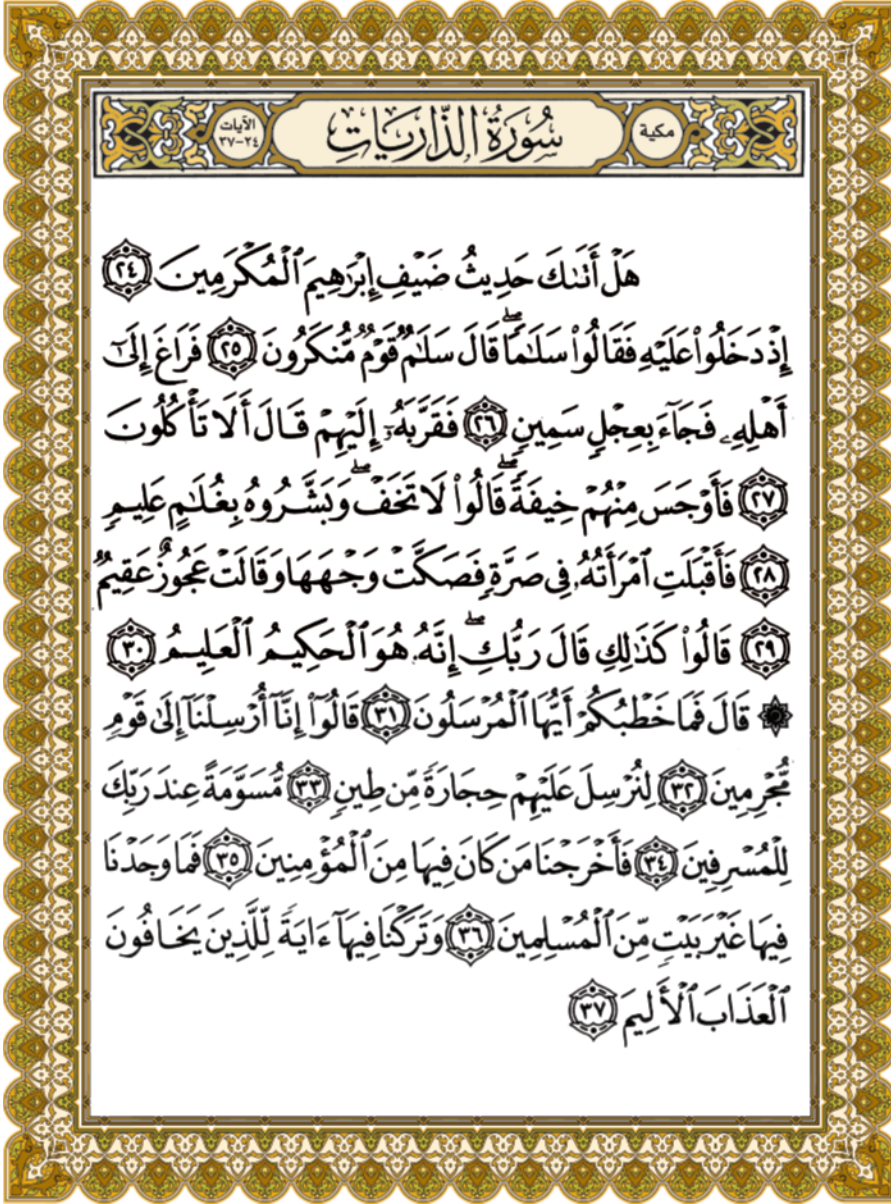 مكية
سُورَةُ الذَّارِيَاتِ
الآيات
٢٤-٣٧
هَلْ أَتَىٰكَ حَدِيثُ ضَيْفِ إِبْرَٰهِيمَ ٱلْمُكْرَمِينَ ٢٤
إِذْ دَخَلُوا۟ عَلَيْهِ فَقَالُوا۟ سَلَٰمًا ۖ قَالَ سَلَٰمٌ قَوْمٌ مُّنكَرُونَ ٢٥ فَرَاغَ إِلَىٰٓ
أَهْلِهِۦ فَجَآءَ بِعِجْلٍ سَمِينٍ ٢٦ فَقَرَّبَهُۥٓ إِلَيْهِمْ قَالَ أَلَا تَأْكُلُونَ
٢٧ فَأَوْجَسَ مِنْهُمْ خِيفَةً ۖ قَالُوا۟ لَا تَخَفْ ۖ وَبَشَّرُوهُ بِغُلَٰمٍ عَلِيمٍ
٢٨ فَأَقْبَلَتِ ٱمْرَأَتُهُۥ فِى صَرَّةٍ فَصَكَّتْ وَجْهَهَا وَقَالَتْ عَجُوزٌ عَقِيمٌ
٢٩ قَالُوا۟ كَذَٰلِكِ قَالَ رَبُّكِ ۖ إِنَّهُۥ هُوَ ٱلْحَكِيمُ ٱلْعَلِيمُ ٣٠
۞ قَالَ فَمَا خَطْبُكُمْ أَيُّهَا ٱلْمُرْسَلُونَ ٣١ قَالُوٓا۟ إِنَّآ أُرْسِلْنَآ إِلَىٰ قَوْمٍ
مُّجْرِمِينَ ٣٢ لِنُرْسِلَ عَلَيْهِمْ حِجَارَةً مِّن طِينٍ ٣٣ مُّسَوَّمَةً عِندَ رَبِّكَ
لِلْمُسْرِفِينَ ٣٤ فَأَخْرَجْنَا مَن كَانَ فِيهَا مِنَ ٱلْمُؤْمِنِينَ ٣٥ فَمَا وَجَدْنَا
فِيهَا غَيْرَ بَيْتٍ مِّنَ ٱلْمُسْلِمِينَ ٣٦ وَتَرَكْنَا فِيهَآ ءَايَةً لِّلَّذِينَ يَخَافُونَ
ٱلْعَذَابَ ٱلْأَلِيمَ ٣٧